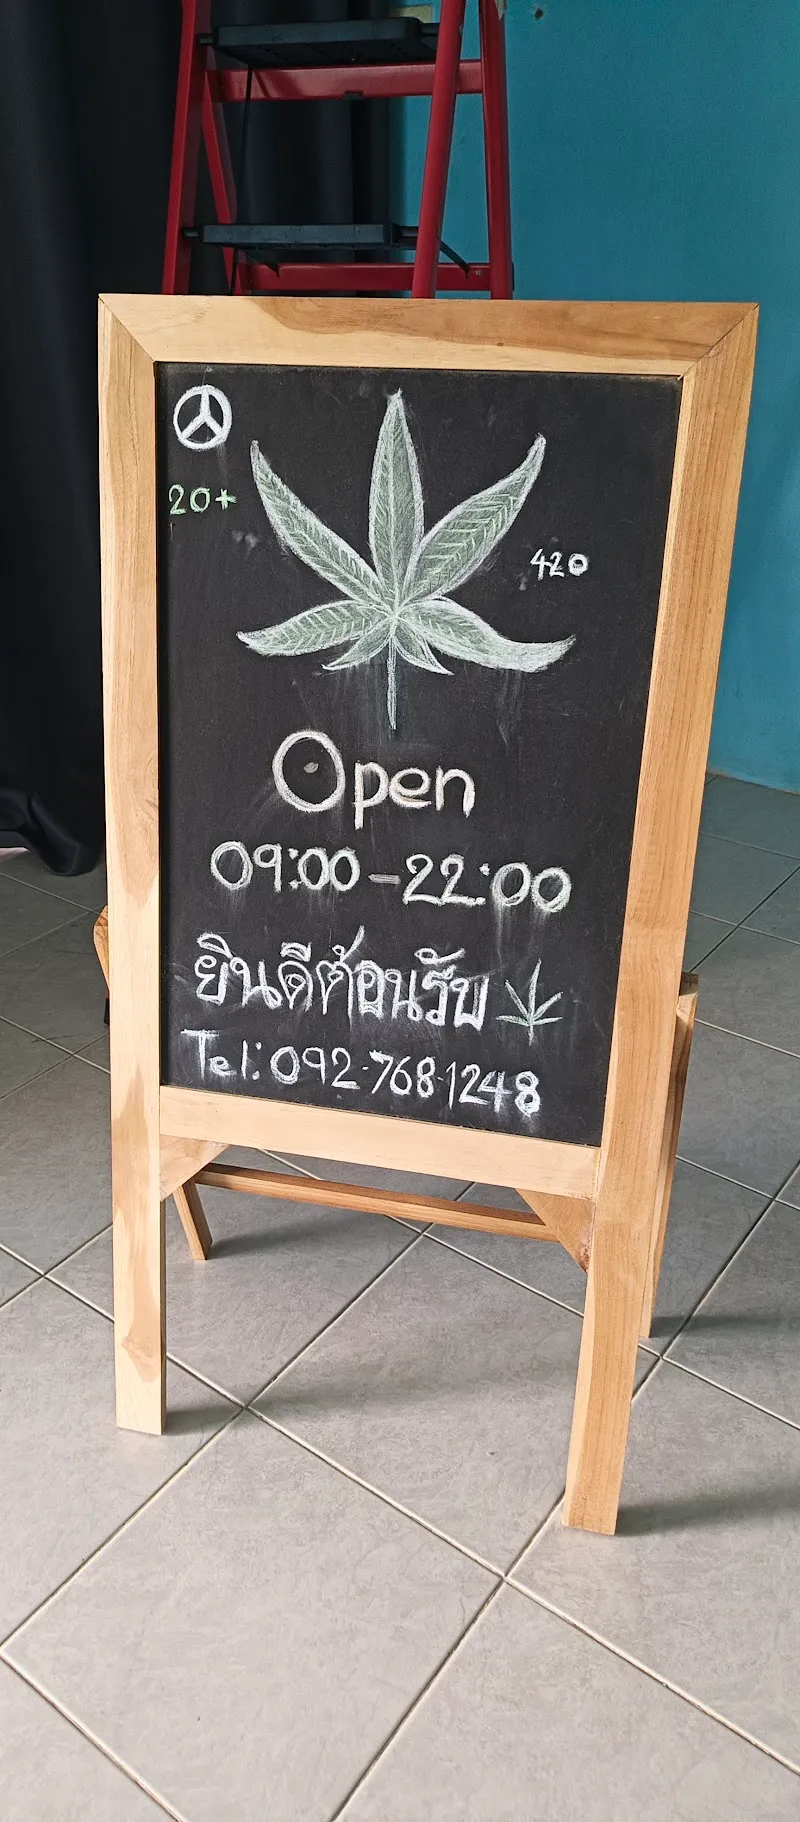 20+
420
Open
09:00-22:00
ยินดีต้อนรับ
Tel: 092-768-1248